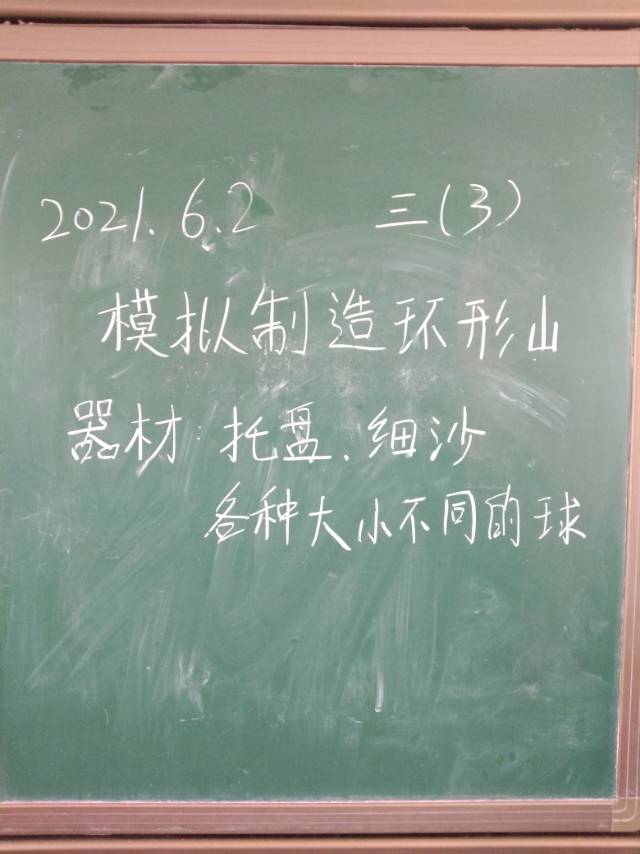 2021.6.2 三(3)
模拟制造环形山
器材:托盘、细沙
各种大小不同的球